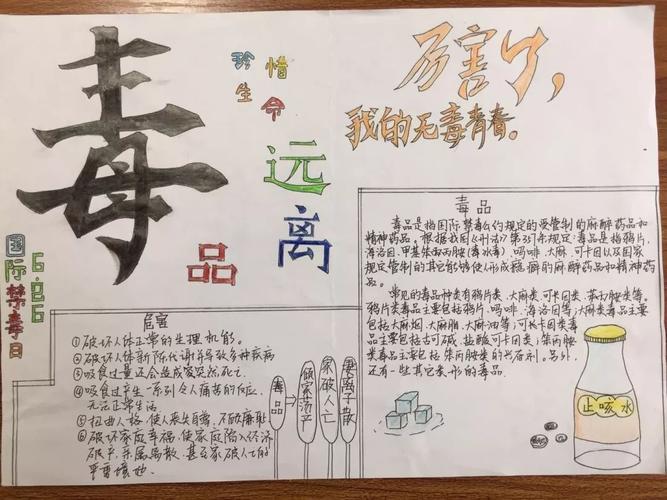 毒
品
珍惜
生命
远离
厉害了,
我的无毒青春。
国际禁毒日
6.26
危害
①破坏人体正常的生理机能。
②破坏人体新陈代谢并导致多种疾病
③吸食过量还会造成突然死亡
④吸食过产生一系列令人痛苦的反应,
无法正常生活
⑤扭曲人格,使人丧失自尊,不顾廉耻
⑥破坏家庭幸福,使家庭陷入经济
破产,亲属离散,甚至家破人亡的
严重境地
毒品
倾家荡产
家破人亡
妻离子散
毒品
毒品是指国际禁毒公约规定的受管制的麻醉药品和
精神药品。根据我国《刑法》第357条规定:毒品是指鸦片、
海洛因、甲基苯丙胺(毒冰毒)、吗啡、大麻、可卡因以及国家
规定管制的其它能够使人形成瘾癖的麻醉药品和精神药
品。
常见的毒品种类有鸦片类、大麻类、可卡因类、苯丙胺类等。
鸦片类毒品主要包括鸦片、吗啡、海洛因等;大麻类毒品主要
包括大麻烟、大麻脂、大麻油等;可卡因类毒
品主要包括古可碱、盐酸可卡因类、苯丙胺
类毒品主要包括苯丙胺类的兴奋剂。另外,
还有一些其它类形的毒品。
止咳水